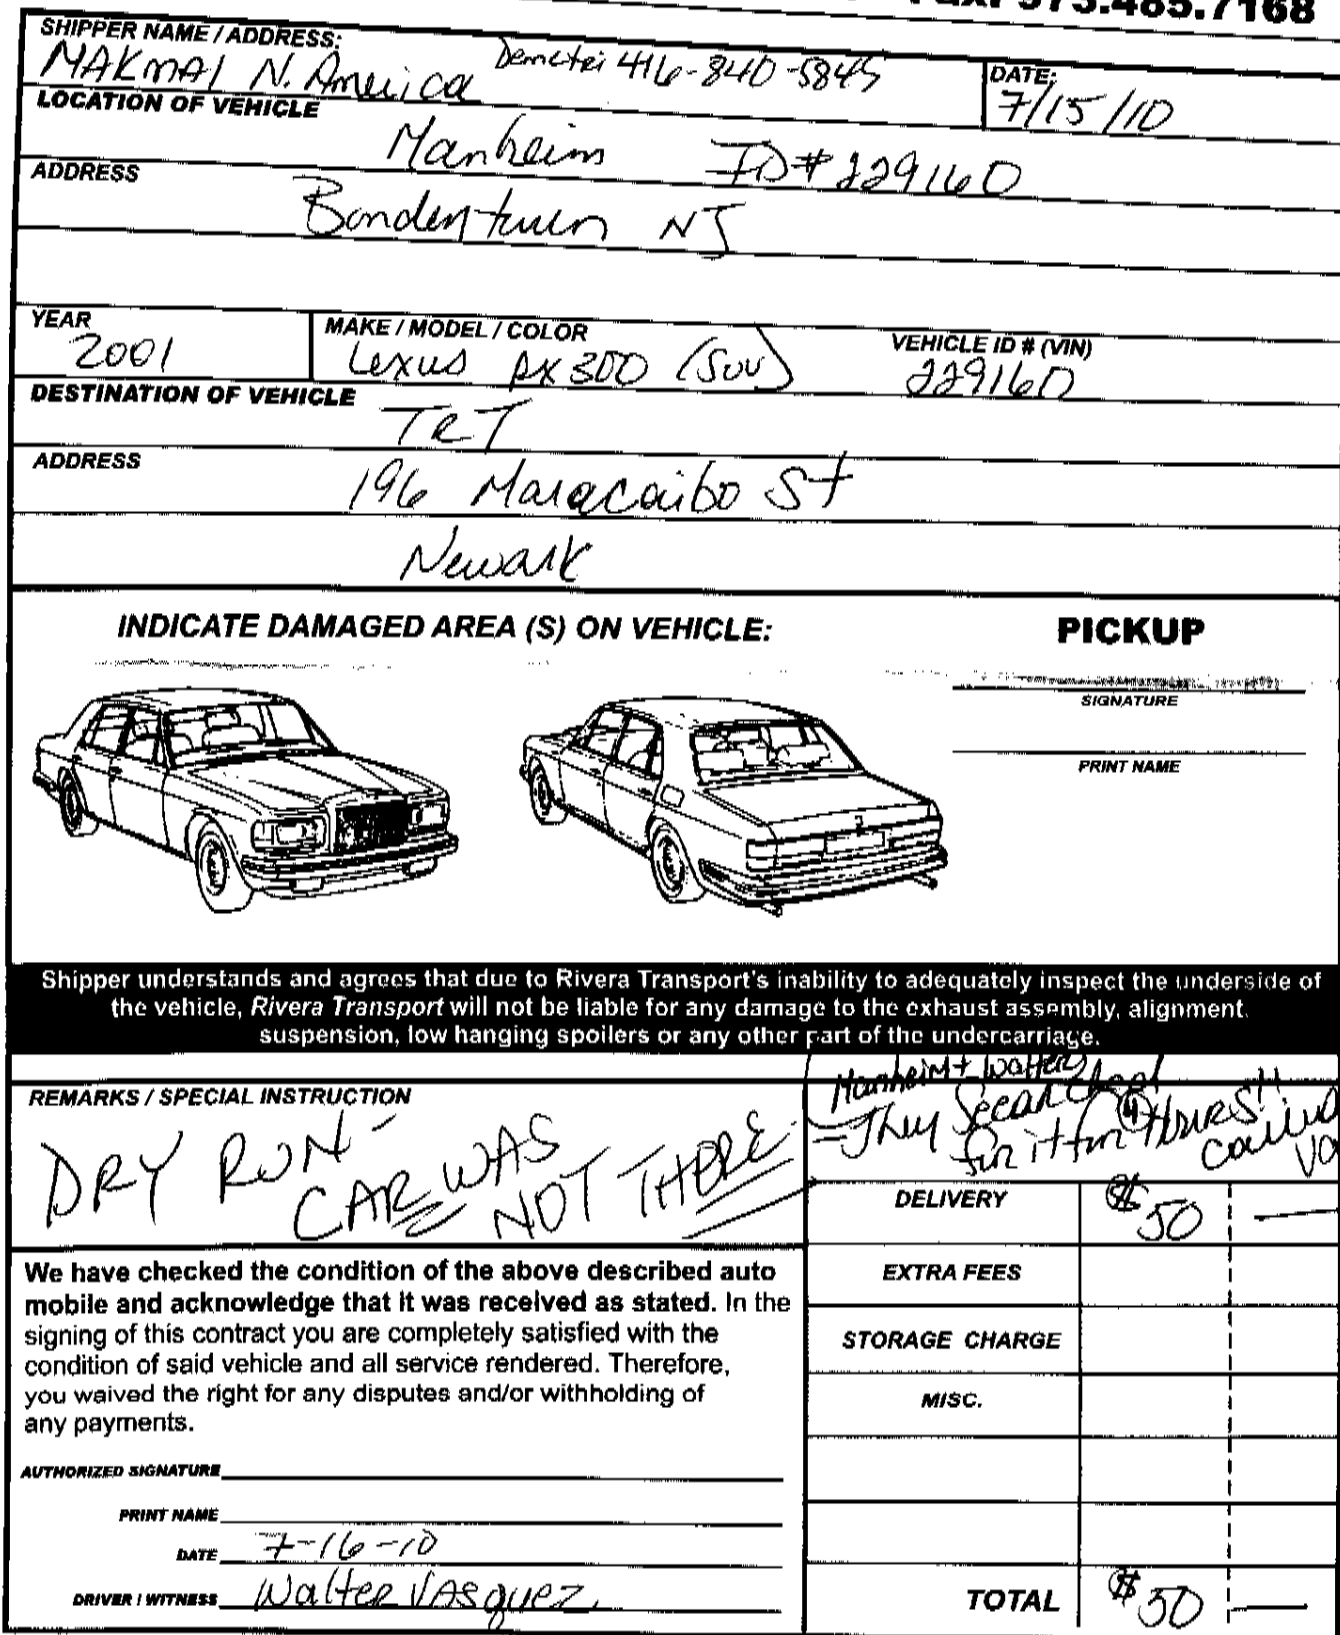 Fax: 973.485.7168
SHIPPER NAME / ADDRESS:
MAKMAL N. America Demetri 416-840-5845
DATE:
7/15/10
LOCATION OF VEHICLE
Manheim ID# 229160
ADDRESS
Bordentown NJ
YEAR
2001
MAKE / MODEL / COLOR
Lexus RX 300 (SUV)
VEHICLE ID # (VIN)
229160
DESTINATION OF VEHICLE
TRT
ADDRESS
196 Maracaibo St
Newark
INDICATE DAMAGED AREA (S) ON VEHICLE:
PICKUP
SIGNATURE
PRINT NAME
Shipper understands and agrees that due to Rivera Transport's inability to adequately inspect the underside of
the vehicle, Rivera Transport will not be liable for any damage to the exhaust assembly, alignment,
suspension, low hanging spoilers or any other part of the undercarriage.
REMARKS / SPECIAL INSTRUCTION
DRY RUN -
CAR WAS
NOT THERE
Manheim + Walter
- They Searched
for it for (4) HOURS!!
DELIVERY $50 —
EXTRA FEES
STORAGE CHARGE
MISC.
TOTAL $50 —
We have checked the condition of the above described auto
mobile and acknowledge that it was received as stated. In the
signing of this contract you are completely satisfied with the
condition of said vehicle and all service rendered. Therefore,
you waived the right for any disputes and/or withholding of
any payments.
AUTHORIZED SIGNATURE
PRINT NAME
DATE 7-16-10
DRIVER / WITNESS Walter Vasquez